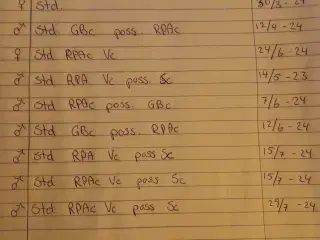 ♀ Std. 30/3-24
♂ Std GBc poss. RPAc 12/4-24
♀ Std RPAc Vc 24/6-24
♂ Std RPA Vc poss. Sc 14/5-23
♂ Std RPAc poss. GBc 7/6-24
♂ Std GBc poss. RPAc 12/6-24
♂ Std RPA Vc poss Sc 15/7-24
♂ Std RPAc Vc poss Sc 15/7-24
♂ Std RPAc Vc poss Sc 29/7-24